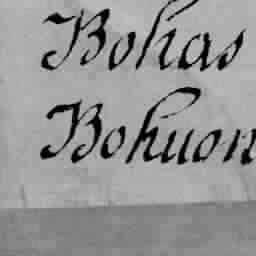 Bohas
Bohuon